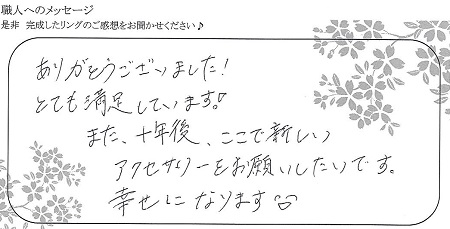 職人へのメッセージ
是非 完成したリングのご感想をお聞かせください♪
ありがとうございました!
とても満足しています。♡
また、十年後、ここで新しい
アクセサリーをお願いしたいです。
幸せになります♡